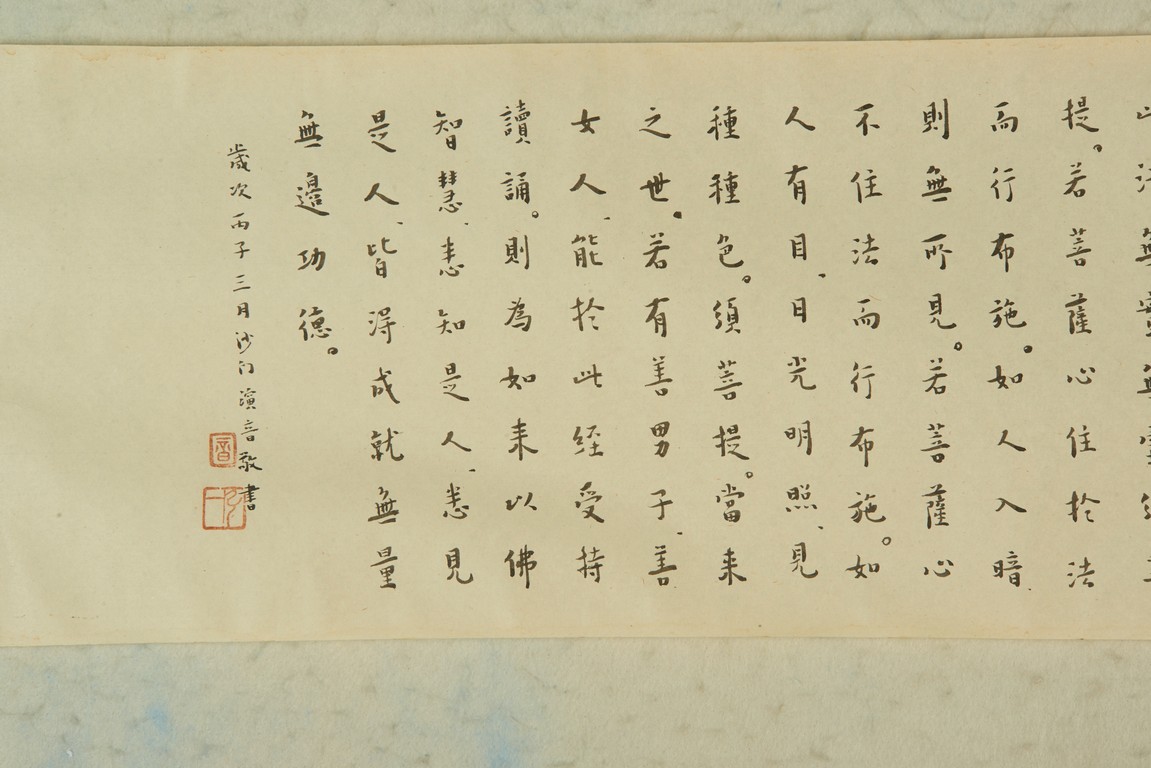 此法無實無虛須菩
提。若菩薩心住於法
而行布施。如人入暗、
則無所見。若菩薩心
不住法而行布施。如
人有目、日光明照、見
種種色。須菩提。當来
之世。若有善男子、善
女人、能於此経受持
讀誦。則為如来以佛
智慧、悉知是人、悉見
是人、皆得成就無量
無邊功德。
歲次丙子三月沙门演音敬書
音
弘一